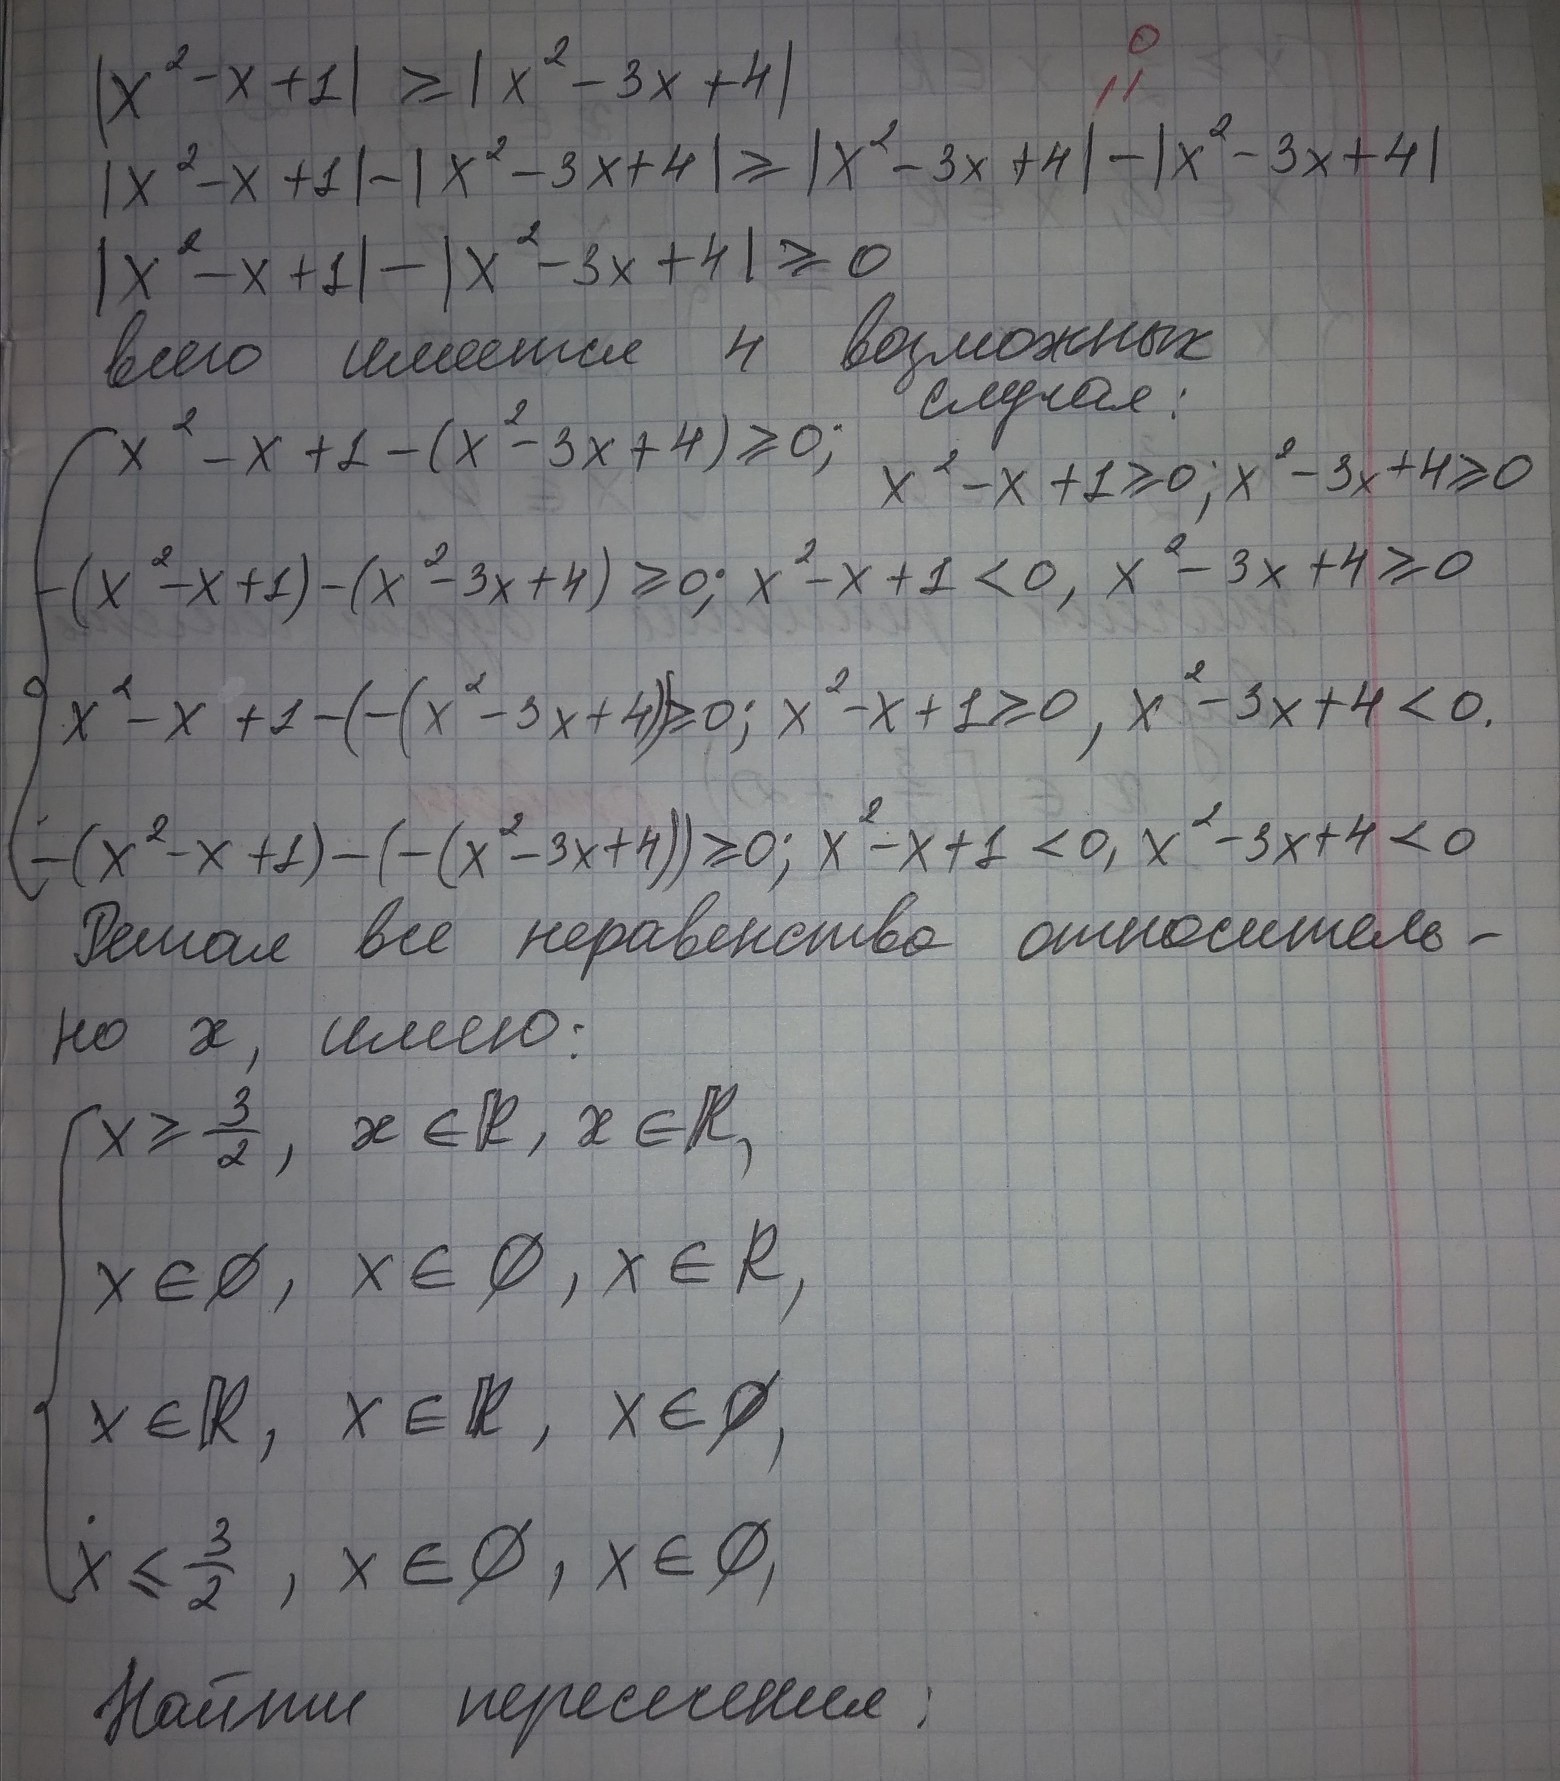 |x² - x + 1| ⩾ |x² - 3x + 4|
0
|x² - x + 1| - |x² - 3x + 4| ⩾ |x² - 3x + 4| - |x² - 3x + 4|
|x² - x + 1| - |x² - 3x + 4| ⩾ 0
всего имеется 4 возможных
случая:
x² - x + 1 - (x² - 3x + 4) ⩾ 0; x² - x + 1 ⩾ 0; x² - 3x + 4 ⩾ 0
-(x² - x + 1) - (x² - 3x + 4) ⩾ 0; x² - x + 1 < 0, x² - 3x + 4 ⩾ 0
x² - x + 1 - (-(x² - 3x + 4)) ⩾ 0; x² - x + 1 ⩾ 0, x² - 3x + 4 < 0.
-(x² - x + 1) - (-(x² - 3x + 4)) ⩾ 0; x² - x + 1 < 0, x² - 3x + 4 < 0
Решая все неравенства относитель-
но x, имею:
x ⩾ 3/2, x ∈ ℝ, x ∈ ℝ,
x ∈ ∅, x ∈ ∅, x ∈ R,
x ∈ ℝ, x ∈ ℝ, x ∈ ∅,
x ⩽ 3/2, x ∈ ∅, x ∈ ∅,
Найти пересечения: